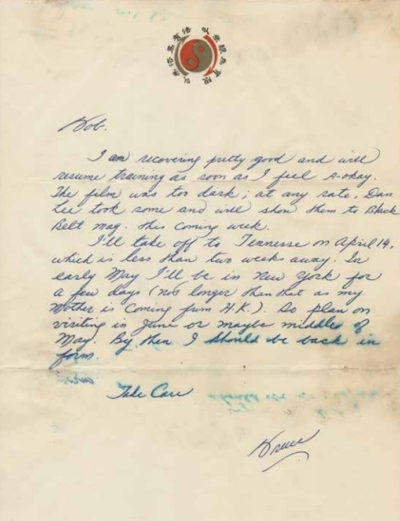 Bob.
I am recovering pretty good and will
resume training as soon as I feel a-okay.
The film was too dark; at any rate, Dan
Lee took some and will show them to Black
Belt mag. this coming week.
I'll take off to Tennesse on April 14,
which is less than two week away. In
early May I'll be in New York for
a few days (not longer than that as my
Mother is coming from H.K.). So plan on
visiting in June or maybe middle of
May. By then I should be back in
form.
Take Care
Bruce